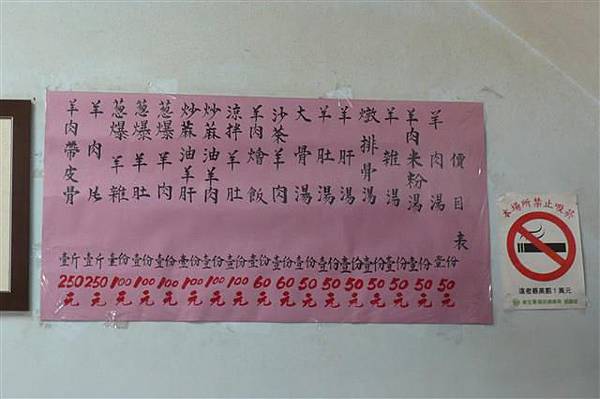 價目表
羊肉湯 壹份 50元
羊肉米粉湯 壹份 50元
羊雜湯 壹份 50元
燉排骨湯 壹份 50元
羊肝湯 壹份 50元
羊肚湯 壹份 50元
大骨湯 壹份 50元
沙茶羊肉 壹份 60元
羊肉燴飯 壹份 60元
涼拌羊肚 壹份 100元
炒蔴油羊肉 壹份 100元
炒蔴油羊肝 壹份 100元
蔥爆羊肉 壹份 100元
蔥爆羊肚 壹份 100元
蔥爆羊雜 壹份 100元
羊肉片 壹斤 250元
羊肉帶皮骨 壹斤 250元
本場所禁止吸菸
違者最高罰1萬元